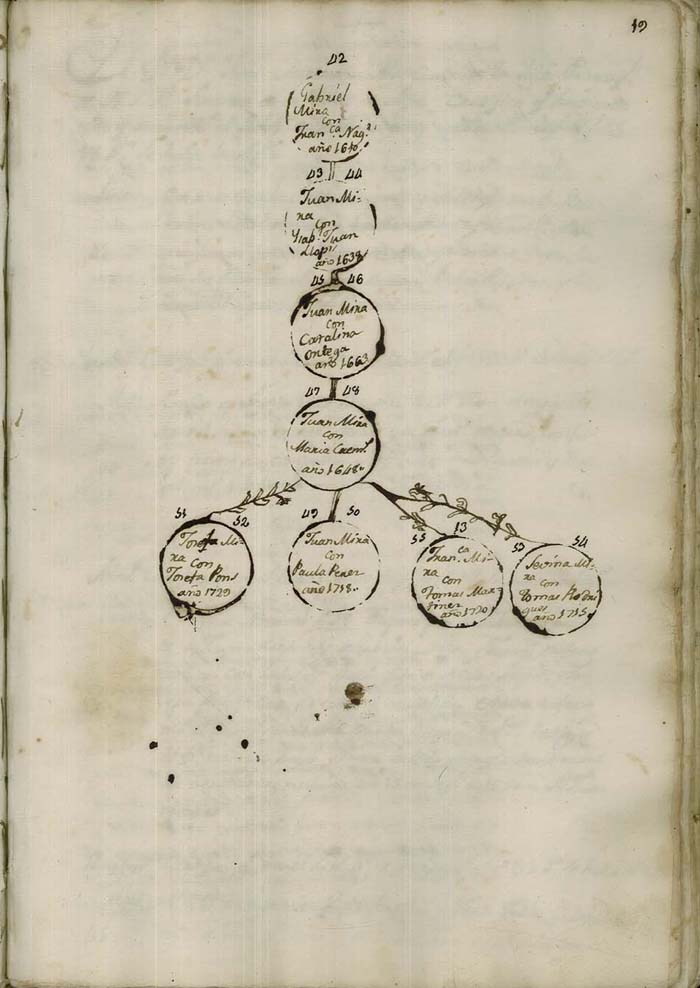 19
42
Gabriel
Mira
con
Fran.ca Nag.
año 1610.
43 44
Juan Mi-
ra
con
Ysab.l Juan
Llop.
año 1639
45 46
Juan Mira
con
Catalina
Ortega
año 1663
47 48
Juan Mira
con
Maria
año 1648.
51 52
Josefa Mi-
ra con
Josefa Pons
año 1729
49 50
Juan Mira
con
Paula Perez
año 1718.
55 13
Fran.ca Mi-
ra
con
Tomas Mar-
tinez
año 1720
53 54
Mi-
ra
con
Tomas Rodri
gues
año 1715.